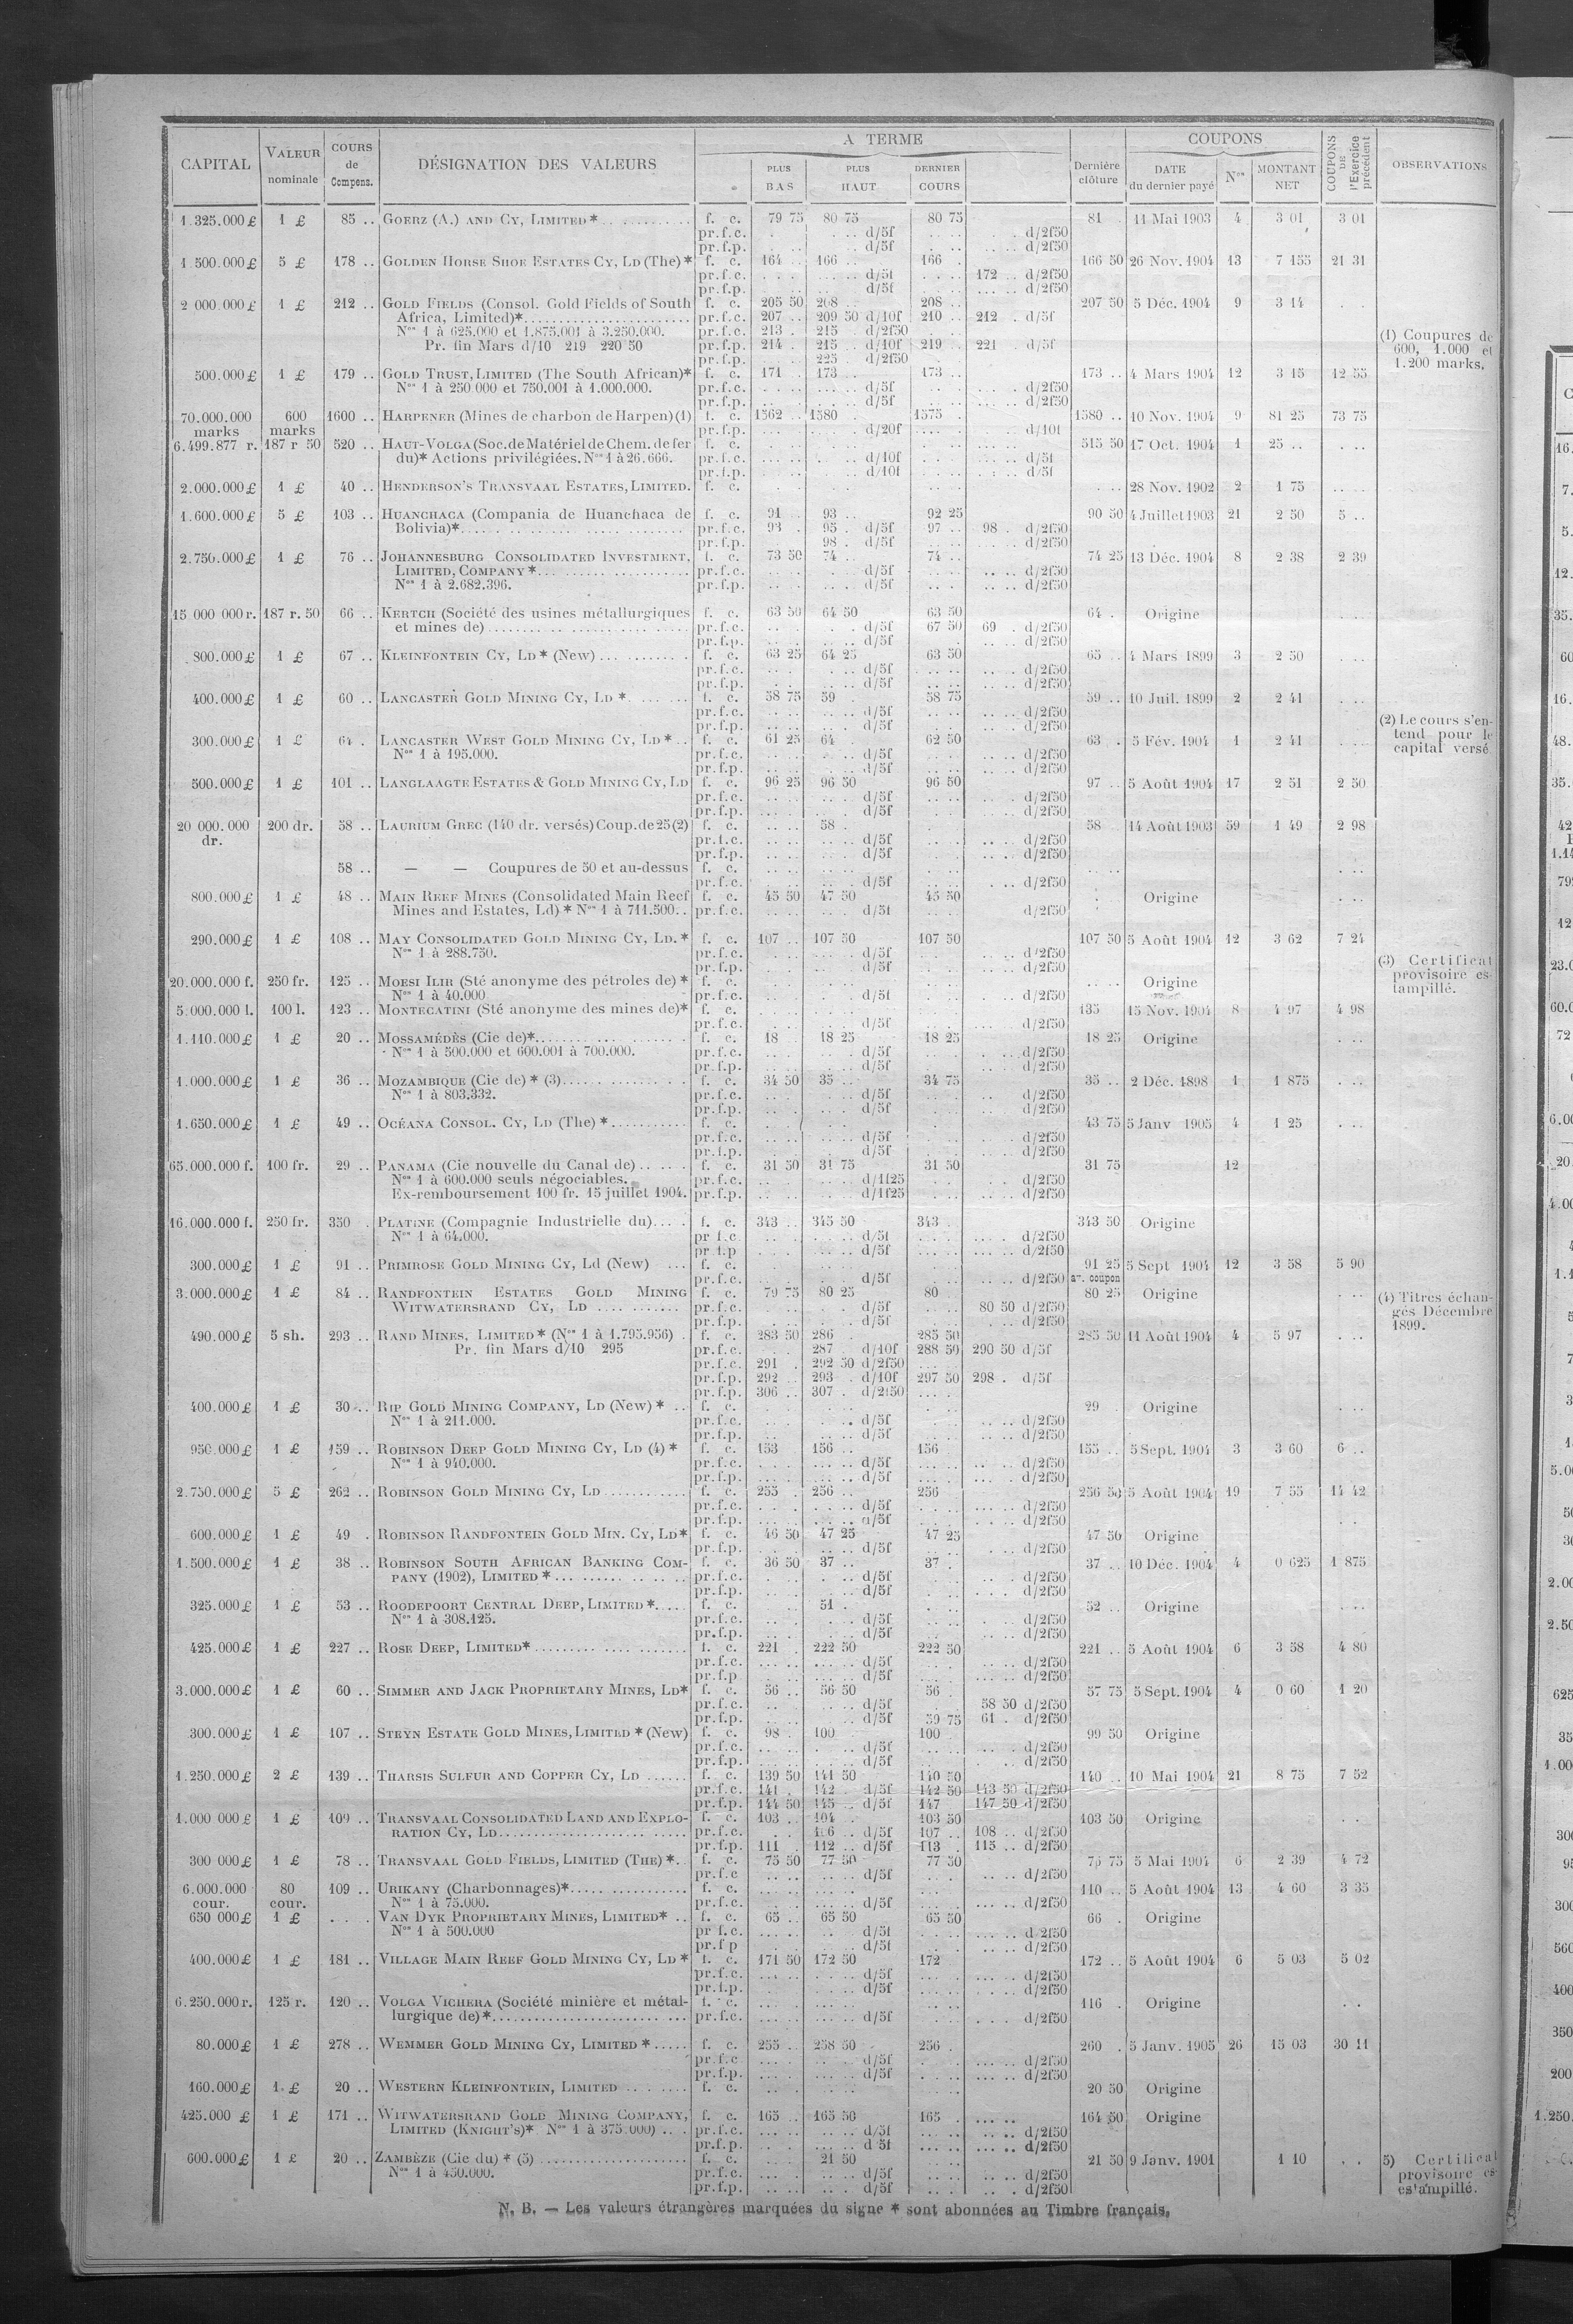 CAPITAL VALEUR nominale COURS de Compens. DÉSIGNATION DES VALEURS A TERME PLUS BAS PLUS HAUT DERNIER COURS Dernière clôture COUPONS DATE du dernier payé Nos MONTANT NET COUPONS DE l'Exercice précédent OBSERVATIONS
1.325.000 £ 1 £ 85 .. GOERZ (A.) AND CY, LIMITED * f. c. 79 75 80 75 80 75 81 . 11 Mai 1903 4 3 01 3 01
pr.f.c. d/5f d/2f50
pr.f.p. d/5f d/2f50
1.500.000 £ 5 £ 178 .. GOLDEN HORSE SHOE ESTATES CY, LD (The) * f. c. 164 .. 166 .. 166 . 166 50 26 Nov. 1904 13 7 155 21 31
pr.f.c. d/5f 172 .. d/2f50
pr.f.p. d/5f d/2f50
2 000.000 £ 1 £ 212 .. GOLD FIELDS (Consol. Gold Fields of South f. c. 205 50 208 .. 208 .. 207 50 5 Déc. 1904 9 3 14
Africa, Limited)* pr.f.c. 207 .. 209 50 d/10f 210 .. 212 . d/5f
Nos 1 à 625.000 et 1.875.001 à 3.250.000. pr.f.c. 213 . 215 d/2f50
Pr. fin Mars d/10 219 220 50 pr.f.p. 214 . 215 .. d/10f 219 .. 221 . d/5f
pr.f.p. 225 . d/2f50
(1) Coupures de
600, 1.000 et
1.200 marks.
500.000 £ 1 £ 179 .. GOLD TRUST, LIMITED (The South African)* f. c. 171 . 173 .. 173 .. 173 .. 4 Mars 1904 12 3 15 12 55
Nos 1 à 250 000 et 750.001 à 1.000.000. pr.f.c. d/5f d/2f50
pr.f.p. d/5f d/2f50
70.000.000 600 1600 .. HARPENER (Mines de charbon de Harpen) (1) f. c. 1562 .. 1580 . 1575 . 1580 .. 10 Nov. 1904 9 81 25 73 75
marks marks pr.f.p. d/20f d/10f
6.499.877 r. 187 r 50 520 .. HAUT-VOLGA (Soc. de Matériel de Chem. de fer f. c. 515 50 17 Oct. 1904 1 25 ..
du)* Actions privilégiées. Nos 1 à 26.666. pr.f.c. d/10f d/5f
pr.f.p. d/10f d/5f
2.000.000 £ 1 £ 40 .. HENDERSON'S TRANSVAAL ESTATES, LIMITED. f. c. 28 Nov. 1902 2 1 75
1.600.000 £ 5 £ 103 .. HUANCHACA (Compania de Huanchaca de f. c. 91 .. 93 .. 92 25 90 50 4 Juillet 1903 21 2 50 5 ..
Bolivia)* pr.f.c. 93 . 95 . d/5f 97 .. 98 . d/2f50
pr.f.p. 98 . d/5f d/2f50
2.750.000 £ 1 £ 76 .. JOHANNESBURG CONSOLIDATED INVESTMENT, f. c. 73 50 74 .. 74 .. 74 25 13 Déc. 1904 8 2 38 2 39
LIMITED, COMPANY * pr.f.c. d/5f d/2f50
Nos 1 à 2.682.396. pr.f.p. d/5f d/2f50
15 000 000 r. 187 r. 50 66 .. KERTCH (Société des usines métallurgiques f. c. 63 50 64 50 63 50 64 . Origine
et mines de) pr.f.c. d/5f 67 50 69 . d/2f50
pr.f.p. d/5f d/2f50
800.000 £ 1 £ 67 .. KLEINFONTEIN CY, LD * (New) f. c. 63 25 64 25 63 50 65 .. 4 Mars 1899 3 2 50
pr.f.c. d/5f d/2f50
pr.f.p. d/5f d/2f50
400.000 £ 1 £ 60 .. LANCASTER GOLD MINING CY, LD * f. c. 58 75 59 . 58 75 59 .. 10 Juil. 1899 2 2 41
pr.f.c. d/5f d/2f50
pr.f.p. d/5f d/2f50
(2) Le cours s'en-
tend pour le
capital versé.
300.000 £ 1 £ 64 . LANCASTER WEST GOLD MINING CY, LD * f. c. 61 25 64 . 62 50 63 . 5 Fév. 1904 1 2 41
Nos 1 à 195.000. pr.f.c. d/5f d/2f50
pr.f.p. d/5f d/2f50
500.000 £ 1 £ 101 .. LANGLAAGTE ESTATES & GOLD MINING CY, LD f. c. 96 25 96 50 96 50 97 .. 5 Août 1904 17 2 51 2 50
pr.f.c. d/5f d/2f50
pr.f.p. d/5f d/2f50
20 000.000 200 dr. 58 .. LAURIUM GREC (140 dr. versés) Coup. de 25 (2) f. c. 58 . 58 .. 14 Août 1903 59 1 49 2 98
dr. pr.f.c. d/5f d/2f50
pr.f.p. d/5f d/2f50
58 .. — — Coupures de 50 et au-dessus f. c.
pr.f.c. d/5f d/2f50
800.000 £ 1 £ 48 .. MAIN REEF MINES (Consolidated Main Reef f. c. 45 50 47 50 45 50 Origine
Mines and Estates, Ld) * Nos 1 à 711.500. pr.f.c. d/5f d/2f50
290.000 £ 1 £ 108 .. MAY CONSOLIDATED GOLD MINING CY, LD. * f. c. 107 .. 107 50 107 50 107 50 5 Août 1904 12 3 62 7 24
Nos 1 à 288.750. pr.f.c. d/5f d/2f50
pr.f.p. d/5f d/2f50
(3) Certificat
provisoire es-
tampillé.
20.000.000 f. 250 fr. 125 .. MOESI ILIR (Sté anonyme des pétroles de) * f. c. Origine
Nos 1 à 40.000 pr.f.c. d/5f d/2f50
5.000.000 l. 100 l. 123 .. MONTECATINI (Sté anonyme des mines de)* f. c. 135 15 Nov. 1904 8 4 97 4 98
pr.f.c. d/5f d/2f50
1.110.000 £ 1 £ 20 .. MOSSAMÉDÈS (Cie de)* f. c. 18 18 25 18 25 18 25 Origine
Nos 1 à 500.000 et 600.001 à 700.000. pr.f.c. d/5f d/2f50
pr.f.p. d/5f d/2f50
1.000.000 £ 1 £ 36 .. MOZAMBIQUE (Cie de) * (3) f. c. 34 50 35 .. 34 75 35 .. 2 Déc. 1898 1 1 875
Nos 1 à 803.332. pr.f.c. d/5f d/2f50
pr.f.p. d/5f d/2f50
1.650.000 £ 1 £ 49 .. OCÉANA CONSOL. CY, LD (The) * f. c. 43 75 5 Janv 1905 4 1 25
pr.f.c. d/5f d/2f50
pr.f.p. d/5f d/2f50
65.000.000 f. 100 fr. 29 .. PANAMA (Cie nouvelle du Canal de) f. c. 31 50 31 75 31 50 31 75 12
Nos 1 à 600.000 seuls négociables. pr.f.c. d/1f25 d/2f50
Ex-remboursement 100 fr. 15 juillet 1904. pr.f.p. d/1f25 d/2f50
16.000.000 f. 250 fr. 350 . PLATINE (Compagnie Industrielle du) f. c. 343 .. 345 50 343 . 343 50 Origine
Nos 1 à 64.000. pr f.c d/5f d/2f50
pr f.p d/5f d/2f50
300.000 £ 1 £ 91 .. PRIMROSE GOLD MINING CY, Ld (New) f. c. 91 25 5 Sept 1904 12 3 58 5 90
pr.f.c. d/5f d/2f50 av. coupon
3.000.000 £ 1 £ 84 .. RANDFONTEIN ESTATES GOLD MINING f. c. 79 75 80 25 80 80 25 Origine
WITWATERSRAND CY, LD pr.f.c. d/5f 80 50 d/2f50
pr.f.p. d/5f d/2f50
(4) Titres échan-
gés Décembre
1899.
490.000 £ 5 sh. 293 .. RAND MINES, LIMITED * (Nos 1 à 1.795.956) f. c. 283 50 286 . 285 50 285 50 11 Août 1904 4 5 97
Pr. fin Mars d/10 295 pr.f.c. 287 d/10f 288 50 290 50 d/5f
pr.f.c. 291 . 292 50 d/2f50
pr.f.p. 292 .. 293 . d/10f 297 50 298 . d/5f
pr.f.p. 306 .. 307 . d/2f50
400.000 £ 1 £ 30 .. RIP GOLD MINING COMPANY, LD (New) * f. c. 29 . Origine
Nos 1 à 211.000. pr.f.c. d/5f d/2f50
pr.f.p. d/5f d/2f50
950.000 £ 1 £ 159 .. ROBINSON DEEP GOLD MINING CY, LD (4) * f. c. 153 156 .. 156 . 155 .. 5 Sept. 1904 3 3 60 6 ..
Nos 1 à 940.000. pr.f.c. d/5f d/2f50
pr.f.p. d/5f d/2f50
2.750.000 £ 5 £ 262 .. ROBINSON GOLD MINING CY, LD f. c. 255 . 256 .. 256 256 50 5 Août 1904 19 7 55 14 42
pr.f.c. d/5f d/2f50
pr.f.p. d/5f d/2f50
600.000 £ 1 £ 49 . ROBINSON RANDFONTEIN GOLD MIN. CY, LD* f. c. 46 50 47 25 47 25 47 50 Origine
pr.f.p. d/5f d/2f50
1.500.000 £ 1 £ 38 .. ROBINSON SOUTH AFRICAN BANKING COM- f. c. 36 50 37 .. 37 . 37 .. 10 Déc. 1904 4 0 625 1 875
PANY (1902), LIMITED * pr.f.c. d/5f d/2f50
pr.f.p. d/5f d/2f50
325.000 £ 1 £ 53 .. ROODEPOORT CENTRAL DEEP, LIMITED * f. c. 51 . 52 .. Origine
Nos 1 à 308.125. pr.f.c. d/5f d/2f50
pr.f.p. d/5f d/2f50
425.000 £ 1 £ 227 .. ROSE DEEP, LIMITED* f. c. 221 222 50 222 50 221 .. 5 Août 1904 6 3 58 4 80
pr.f.c. d/5f d/2f50
pr.f.p d/5f d/2f50
3.000.000 £ 1 £ 60 .. SIMMER AND JACK PROPRIETARY MINES, LD* f. c. 56 .. 56 50 56 . 57 75 5 Sept. 1904 4 0 60 1 20
pr.f.c. d/5f 58 50 d/2f50
pr.f.p. d/5f 59 75 61 . d/2f50
300.000 £ 1 £ 107 .. STEYN ESTATE GOLD MINES, LIMITED * (New) f. c. 98 . 100 100 . 99 50 Origine
pr.f.c. d/5f d/2f50
pr.f.p. d/5f d/2f50
1.250.000 £ 2 £ 139 .. THARSIS SULFUR AND COPPER CY, LD f. c. 139 50 141 50 140 50 140 .. 10 Mai 1904 21 8 75 7 52
pr.f.c 141 . 142 . d/5f 142 50 143 50 d/2f50
pr.f.p. 144 50 145 .. d/5f 147 147 50 d/2f50
1.000 000 £ 1 £ 109 .. TRANSVAAL CONSOLIDATED LAND AND EXPLO- f. c. 103 .. 104 . 103 50 103 50 Origine
RATION CY, LD pr.f.c. 106 .. d/5f 107 .. 108 .. d/2f50
pr.f.p. 111 . 112 .. d/5f 113 . 115 .. d/2f50
300 000 £ 1 £ 78 .. TRANSVAAL GOLD FIELDS, LIMITED (THE) * f. c. 75 50 77 50 77 50 75 75 5 Mai 1904 6 2 39 4 72
pr.f.c d/5f d/2f50
6.000.000 80 109 .. URIKANY (Charbonnages)* f. c. 110 .. 5 Août 1904 13 4 60 3 35
cour. cour. Nos 1 à 75.000. pr.f.c. d/5f d/2f50
650 000 £ 1 £ VAN DYK PROPRIETARY MINES, LIMITED* f. c. 65 .. 65 50 65 50 66 . Origine
Nos 1 à 500.000 pr f.c. d/5f d/2f50
pr.f p d/5f d/2f50
400.000 £ 1 £ 181 .. VILLAGE MAIN REEF GOLD MINING CY, LD * f. c. 171 50 172 50 172 172 .. 5 Août 1904 6 5 03 5 02
pr.f.c. d/5f d/2f50
pr.f.p. d/5f d/2f50
6.250.000 r. 125 r. 120 .. VOLGA VICHERA (Société minière et métal- f. c. 116 . Origine
lurgique de)* pr.f.c. d/5f d/2f50
80.000 £ 1 £ 278 .. WEMMER GOLD MINING CY, LIMITED * f. c. 255 .. 258 50 256 . 260 . 5 Janv. 1905 26 15 03 30 11
pr.f.c d/5f d/2f50
pr.f.p. d/5f d/2f50
160.000 £ 1 £ 20 .. WESTERN KLEINFONTEIN, LIMITED f. c. 20 50 Origine
425.000 £ 1 £ 171 .. WITWATERSRAND GOLD MINING COMPANY, f. c. 165 .. 165 50 165 . 164 50 Origine
LIMITED (KNIGHT'S)* Nos 1 à 375.000) pr.f.c. d/5f d/2f50
pr.f.p. d 5f d/2f50
600.000 £ 1 £ 20 .. ZAMBÈZE (Cie du) * (5) f. c. 21 50 21 50 9 Janv. 1901 1 10
Nos 1 à 450.000. pr.f.c. d/5f d/2f50
pr.f.p. d/5f d/2f50
5) Certificat
provisoire es-
es'ampillé.
N. B. — Les valeurs étrangères marquées du signe * sont abonnées au Timbre français.